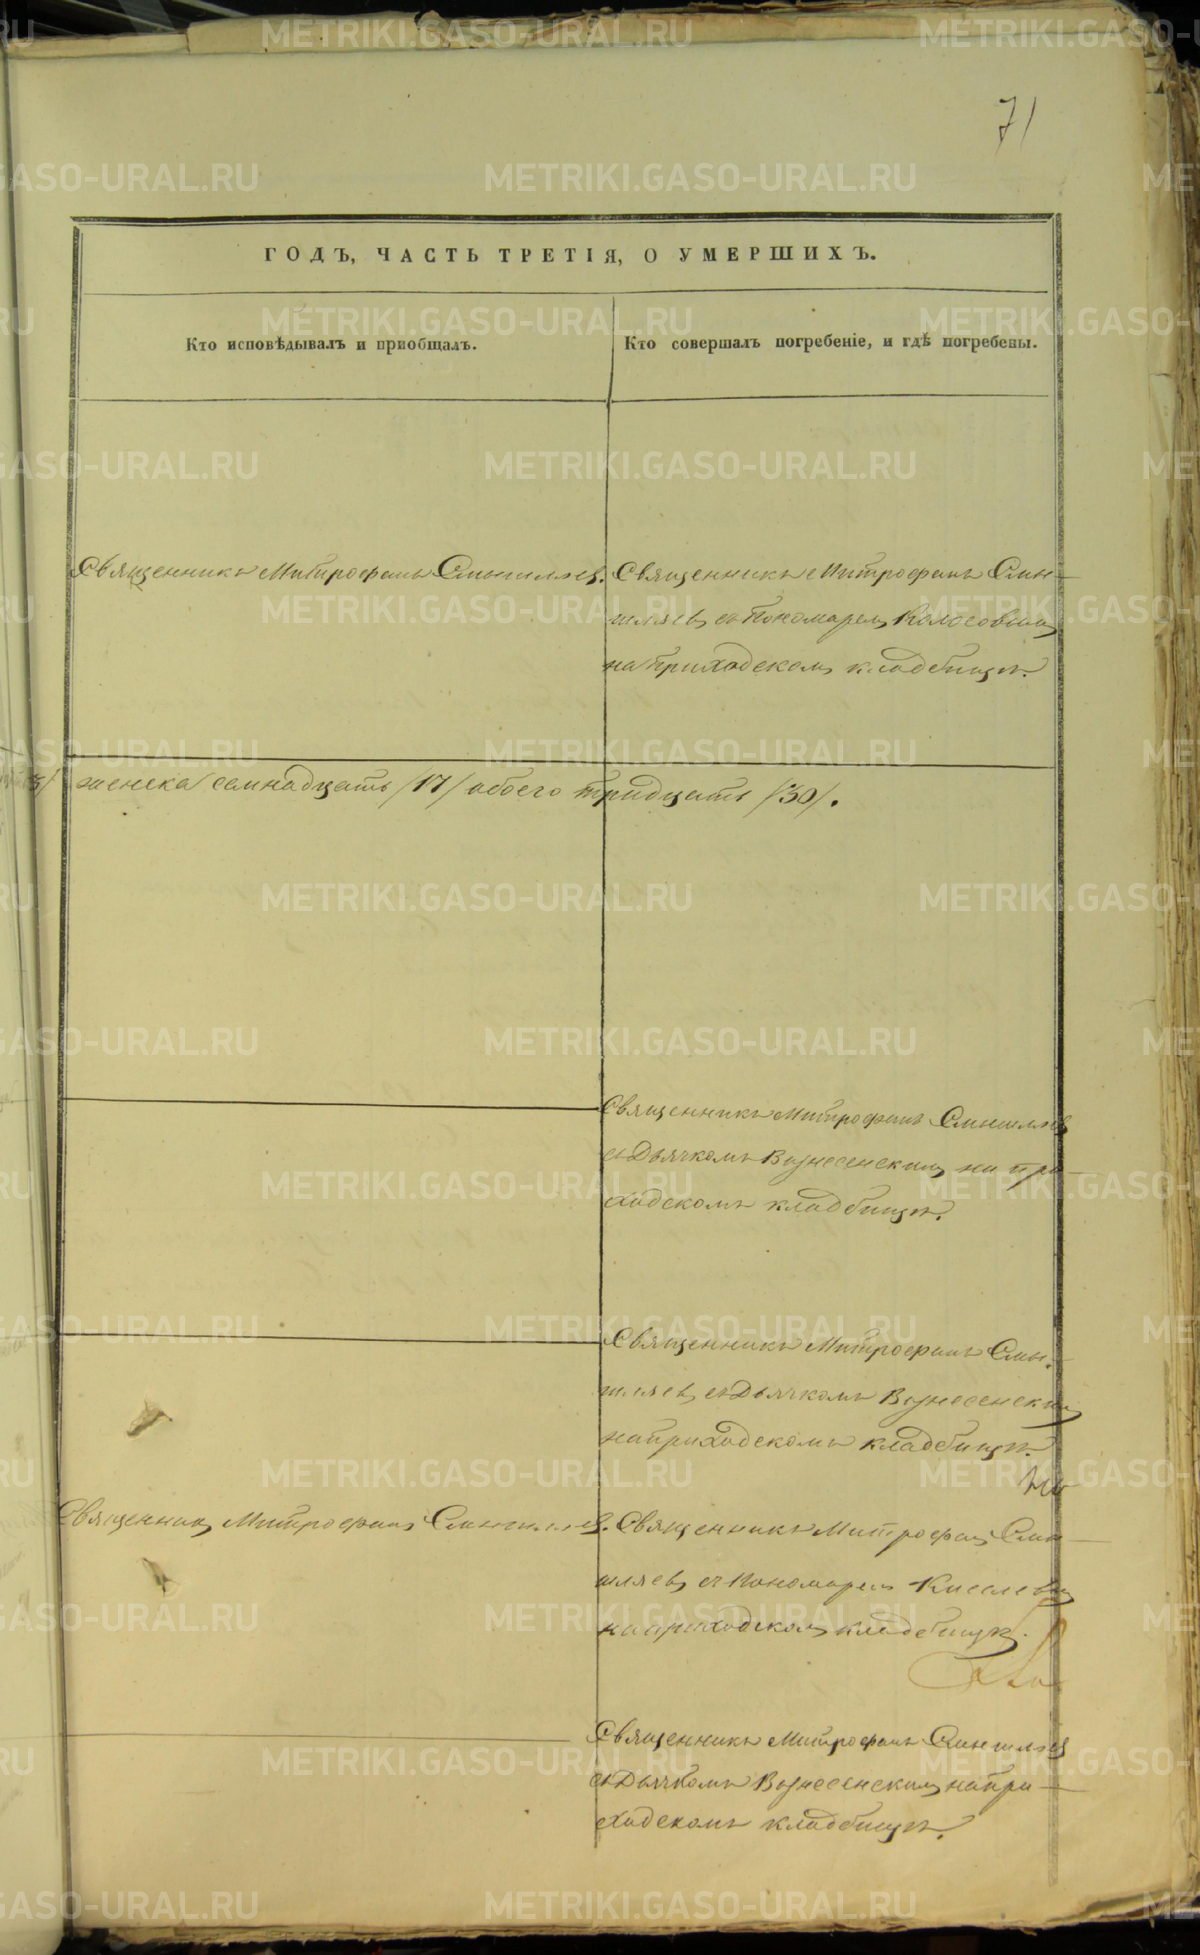 71
ГОДЪ, ЧАСТЬ ТРЕТІЯ, О УМЕРШИХЪ.
Кто исповѣдывалъ и пріобщалъ.
Кто совершалъ погребеніе, и гдѣ погребены.
Священникъ Митрофанъ Смышляев.
Священникъ Митрофанъ Смы-
шляев съ Пономарем Колосовым
на приходском кладбищѣ.
женска семнадцать /17/ обоего тридцать /30/.
Священникъ Митрофанъ Смышляев
съ Дьячкомъ Вознесенским на при-
ходскомъ кладбищѣ.
Священникъ Митрофанъ Смы-
шляев съ Дьячкомъ Вознесенским
на приходскомъ кладбищѣ.
Священник Митрофан Смышляев.
Священникъ Митрофан Смы-
шляев съ Пономарем Киселевым
на приходском кладбищѣ.
Священникъ Митрофанъ Смышляев
съ Дьячкомъ Вознесенским на при-
ходскомъ кладбищѣ.
METRIKI.GASO-URAL.RU